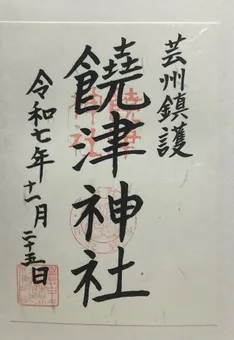 芸州鎮護
饒津神社
令和七年十一月二十五日